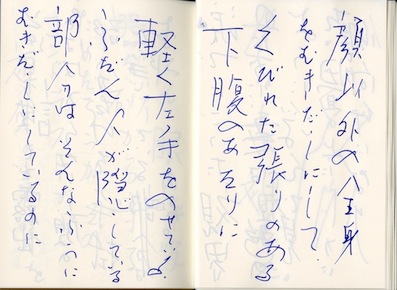 顔以外の全身
をむきだしにして
くびれた張りのある
下腹のあたりに
軽く左手をのせている
ふだん人が隠している
部分はそんなふうに
むきだしにしているのに